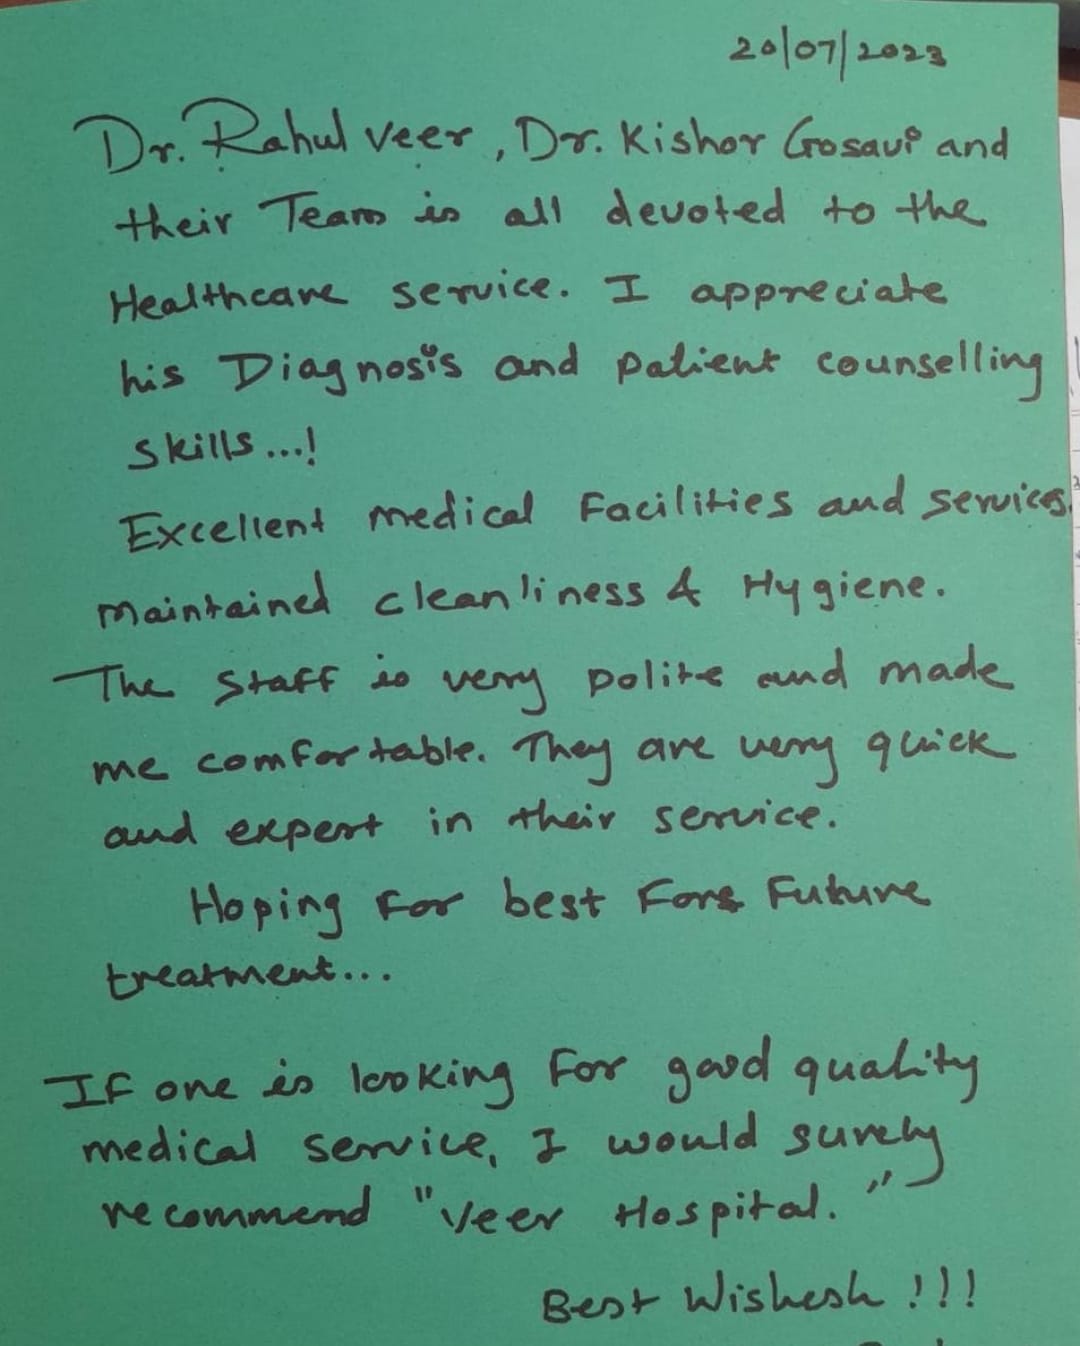 20/07/2023
Dr. Rahul Veer, Dr. Kishor Gosavi and
their Team is all devoted to the
Healthcare service. I appreciate
his Diagnosis and patient counselling
skills...!
Excellent medical Facilities and services,
maintained cleanliness & Hygiene.
The staff is very polite and made
me comfortable. They are very quick
and expert in their service.
Hoping For best For Future
treatment...
IF one is looking For good quality
medical service, I would surely
recommend "Veer Hospital."
Best Wishesh !!!